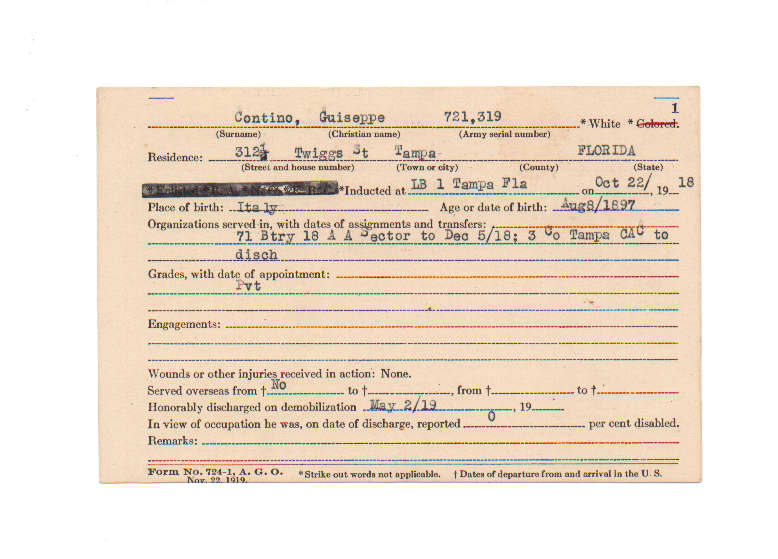 1
Contino, Guiseppe 721,319 * White * Colored.
(Surname) (Christian name) (Army serial number)
Residence: 312½ Twiggs St Tampa FLORIDA
(Street and house number) (Town or city) (County) (State)
*Inducted at LB 1 Tampa Fla on Oct 22/, 1918
Place of birth: Italy Age or date of birth: Aug8/1897
Organizations served in, with dates of assignments and transfers:
71 Btry 18 A A Sector to Dec 5/18; 3 Co Tampa CAC to
disch
Grades, with date of appointment:
Pvt
Engagements:
Wounds or other injuries received in action: None.
Served overseas from † No to †, from † to †
Honorably discharged on demobilization May 2/19, 19
In view of occupation he was, on date of discharge, reported 0 per cent disabled.
Remarks:
Form No. 724-1, A. G. O. *Strike out words not applicable. † Dates of departure from and arrival in the U. S.
Nov. 22, 1919.